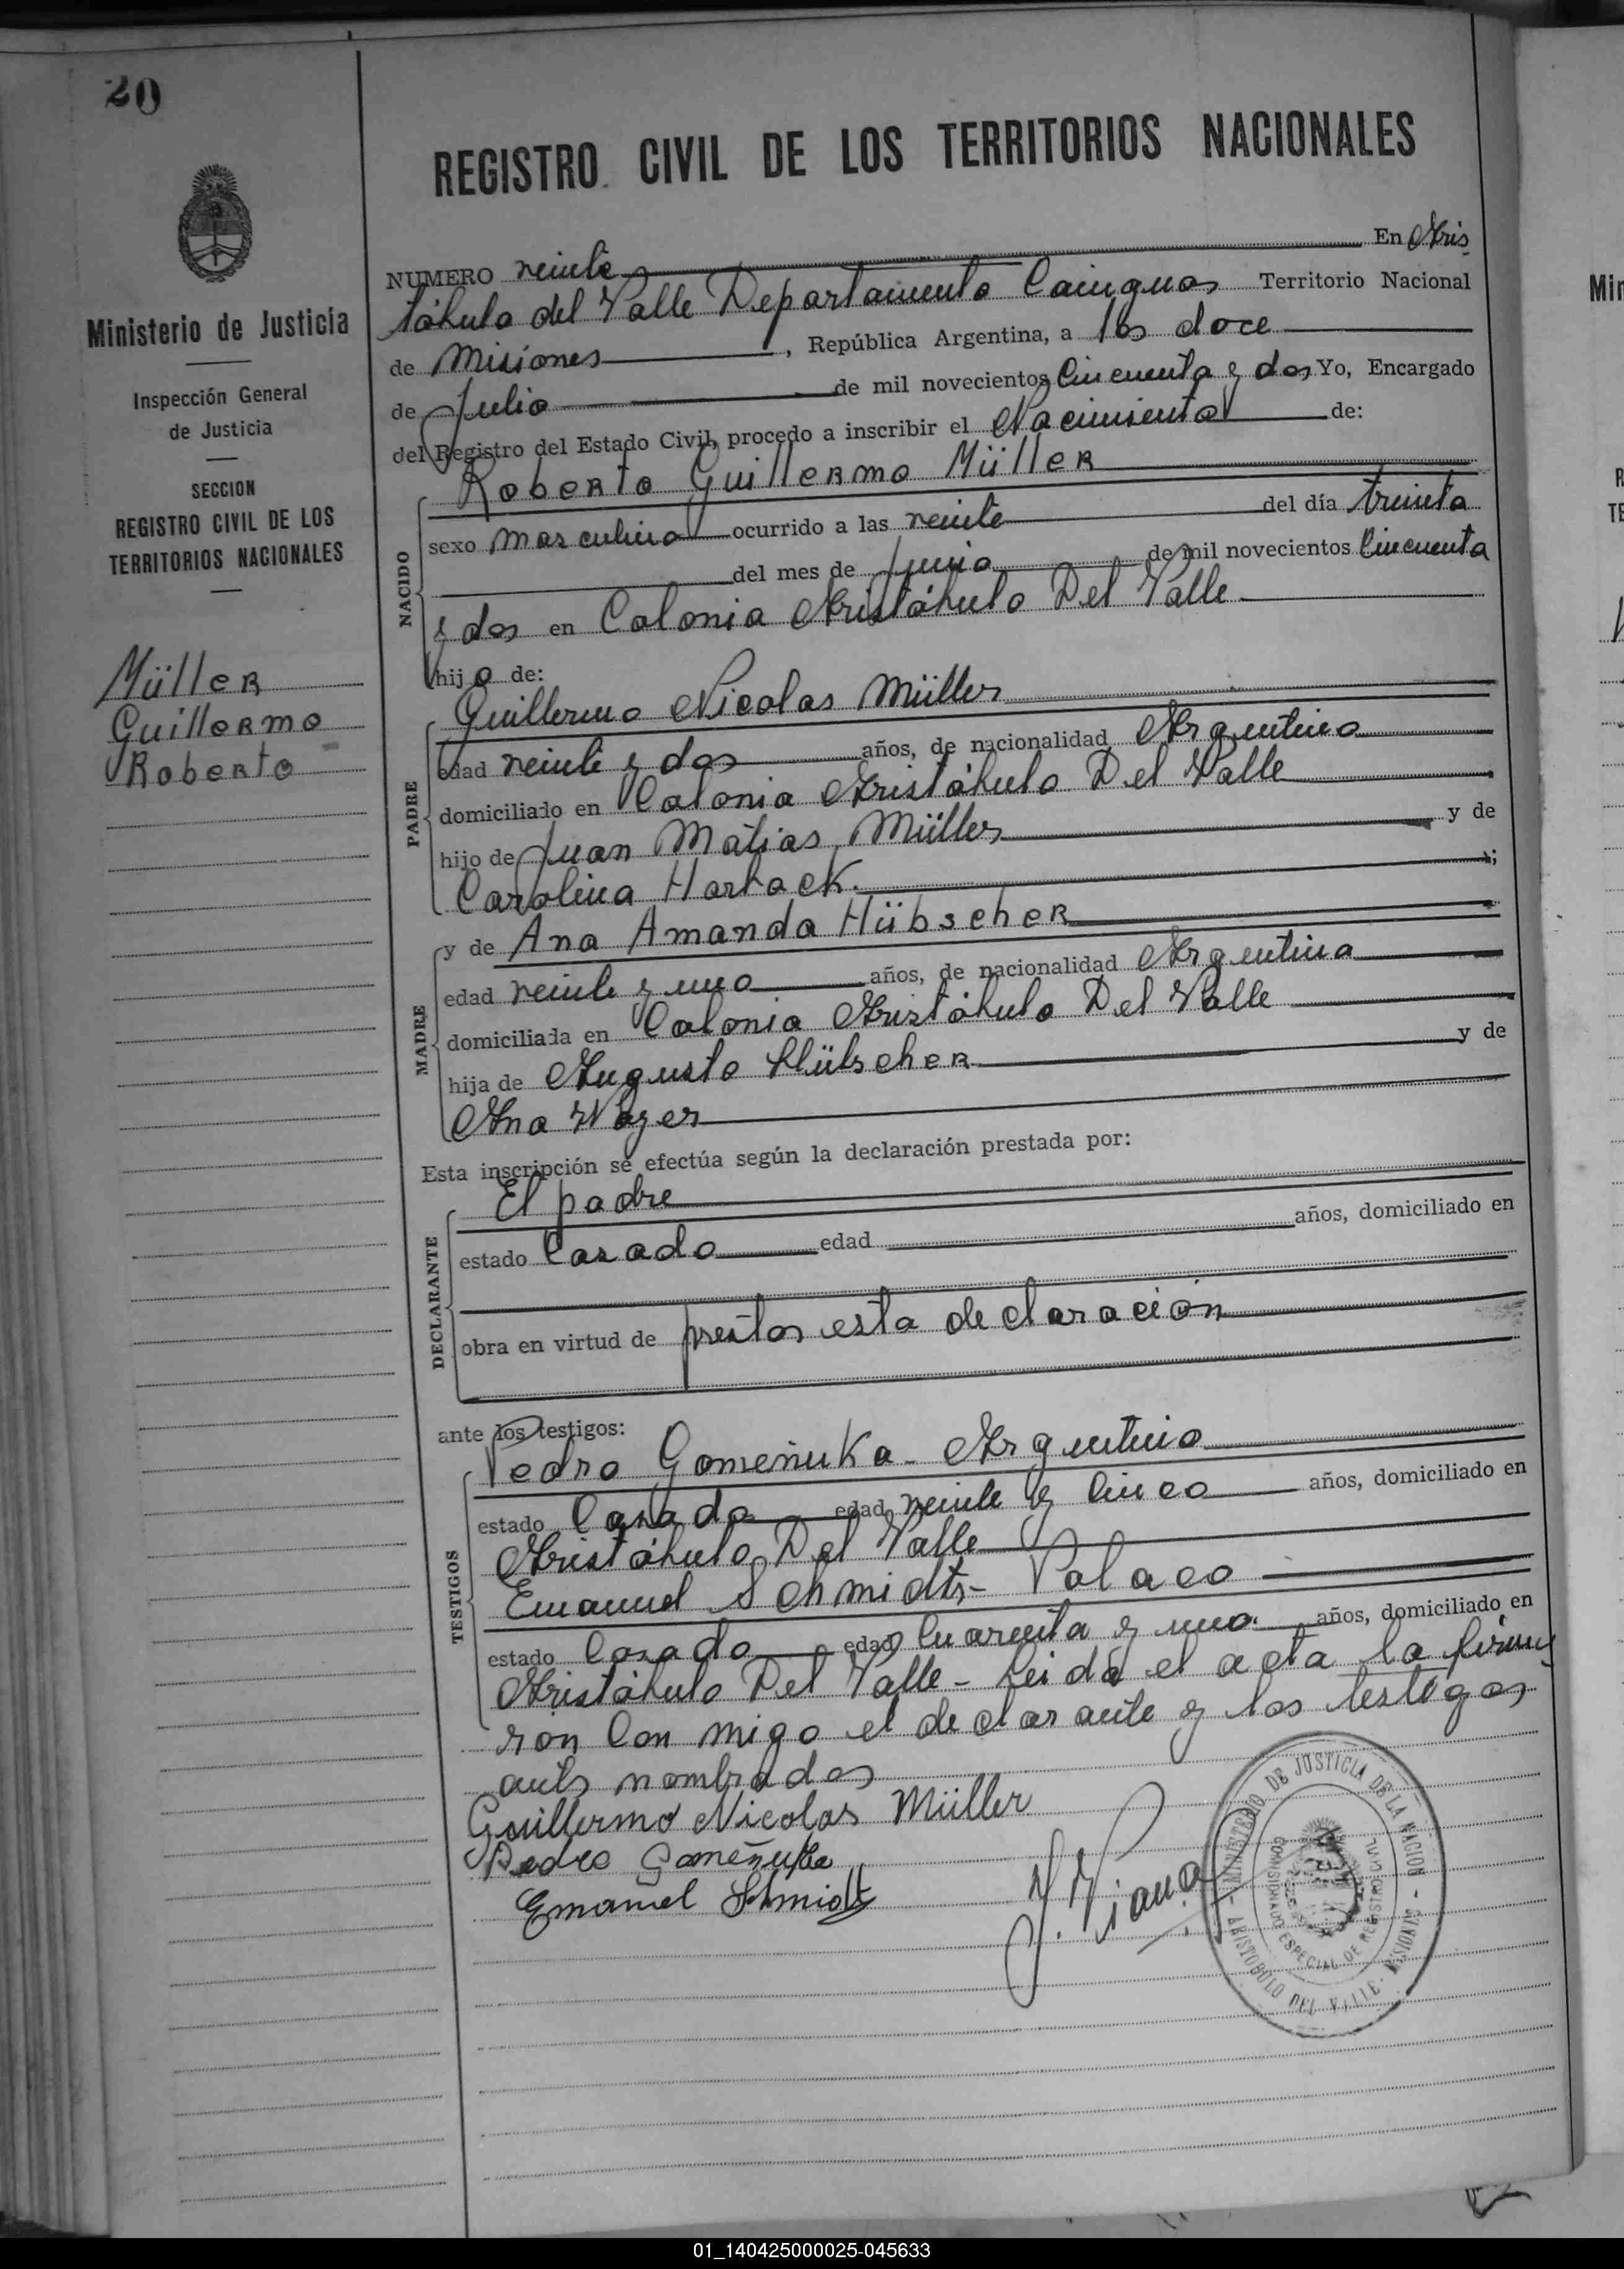 20
REGISTRO CIVIL DE LOS TERRITORIOS NACIONALES
Ministerio de Justicia
Inspección General
de Justicia
SECCION
REGISTRO CIVIL DE LOS
TERRITORIOS NACIONALES
Müller
Guillermo
Roberto
NUMERO veinte En Aris
tóbulo del Valle Departamento Cainguas Territorio Nacional
de Misiones, República Argentina, a los doce
de Julio de mil novecientos Cincuenta y dos Yo, Encargado
del Registro del Estado Civil, procedo a inscribir el Nacimiento de:
NACIDO
Roberto Guillermo Müller
sexo masculino ocurrido a las veinte del día treinta
del mes de Junio de mil novecientos Cincuenta
y dos en Colonia Aristóbulo Del Valle
hijo de:
PADRE
Guillermo Nicolas Müller
edad veinte y dos años, de nacionalidad Argentino
domiciliado en Colonia Aristóbulo Del Valle
hijo de Juan Matias Müller y de
Carolina Harback.;
MADRE
y de Ana Amanda Hübscher
edad veinte y uno años, de nacionalidad Argentina
domiciliada en Colonia Aristóbulo Del Valle
hija de Augusto Hübscher y de
Ana
Esta inscripción se efectúa según la declaración prestada por:
DECLARANTE
El padre
estado Casado edad años, domiciliado en
obra en virtud de prestar esta declaración
ante los testigos:
TESTIGOS
Pedro Gomeñuka - Argentino
estado Casado edad veinte y cinco años, domiciliado en
Aristóbulo Del Valle
Emanuel Schmidt - Polaco
estado Casado edad Cuarenta y uno. años, domiciliado en
Aristóbulo Del Valle - Leida el acta la firma
ron con migo el declarante y los testigos
antes nombrados
Guillermo Nicolas Müller
Pedro Gomeñuka
Emanuel Schmidt
MINISTERIO DE JUSTICIA DE LA NACION - MISIONES
ARISTOBULO DEL VALLE
ESPECIAL DE REGISTRO CIVIL
01_140425000025-045633